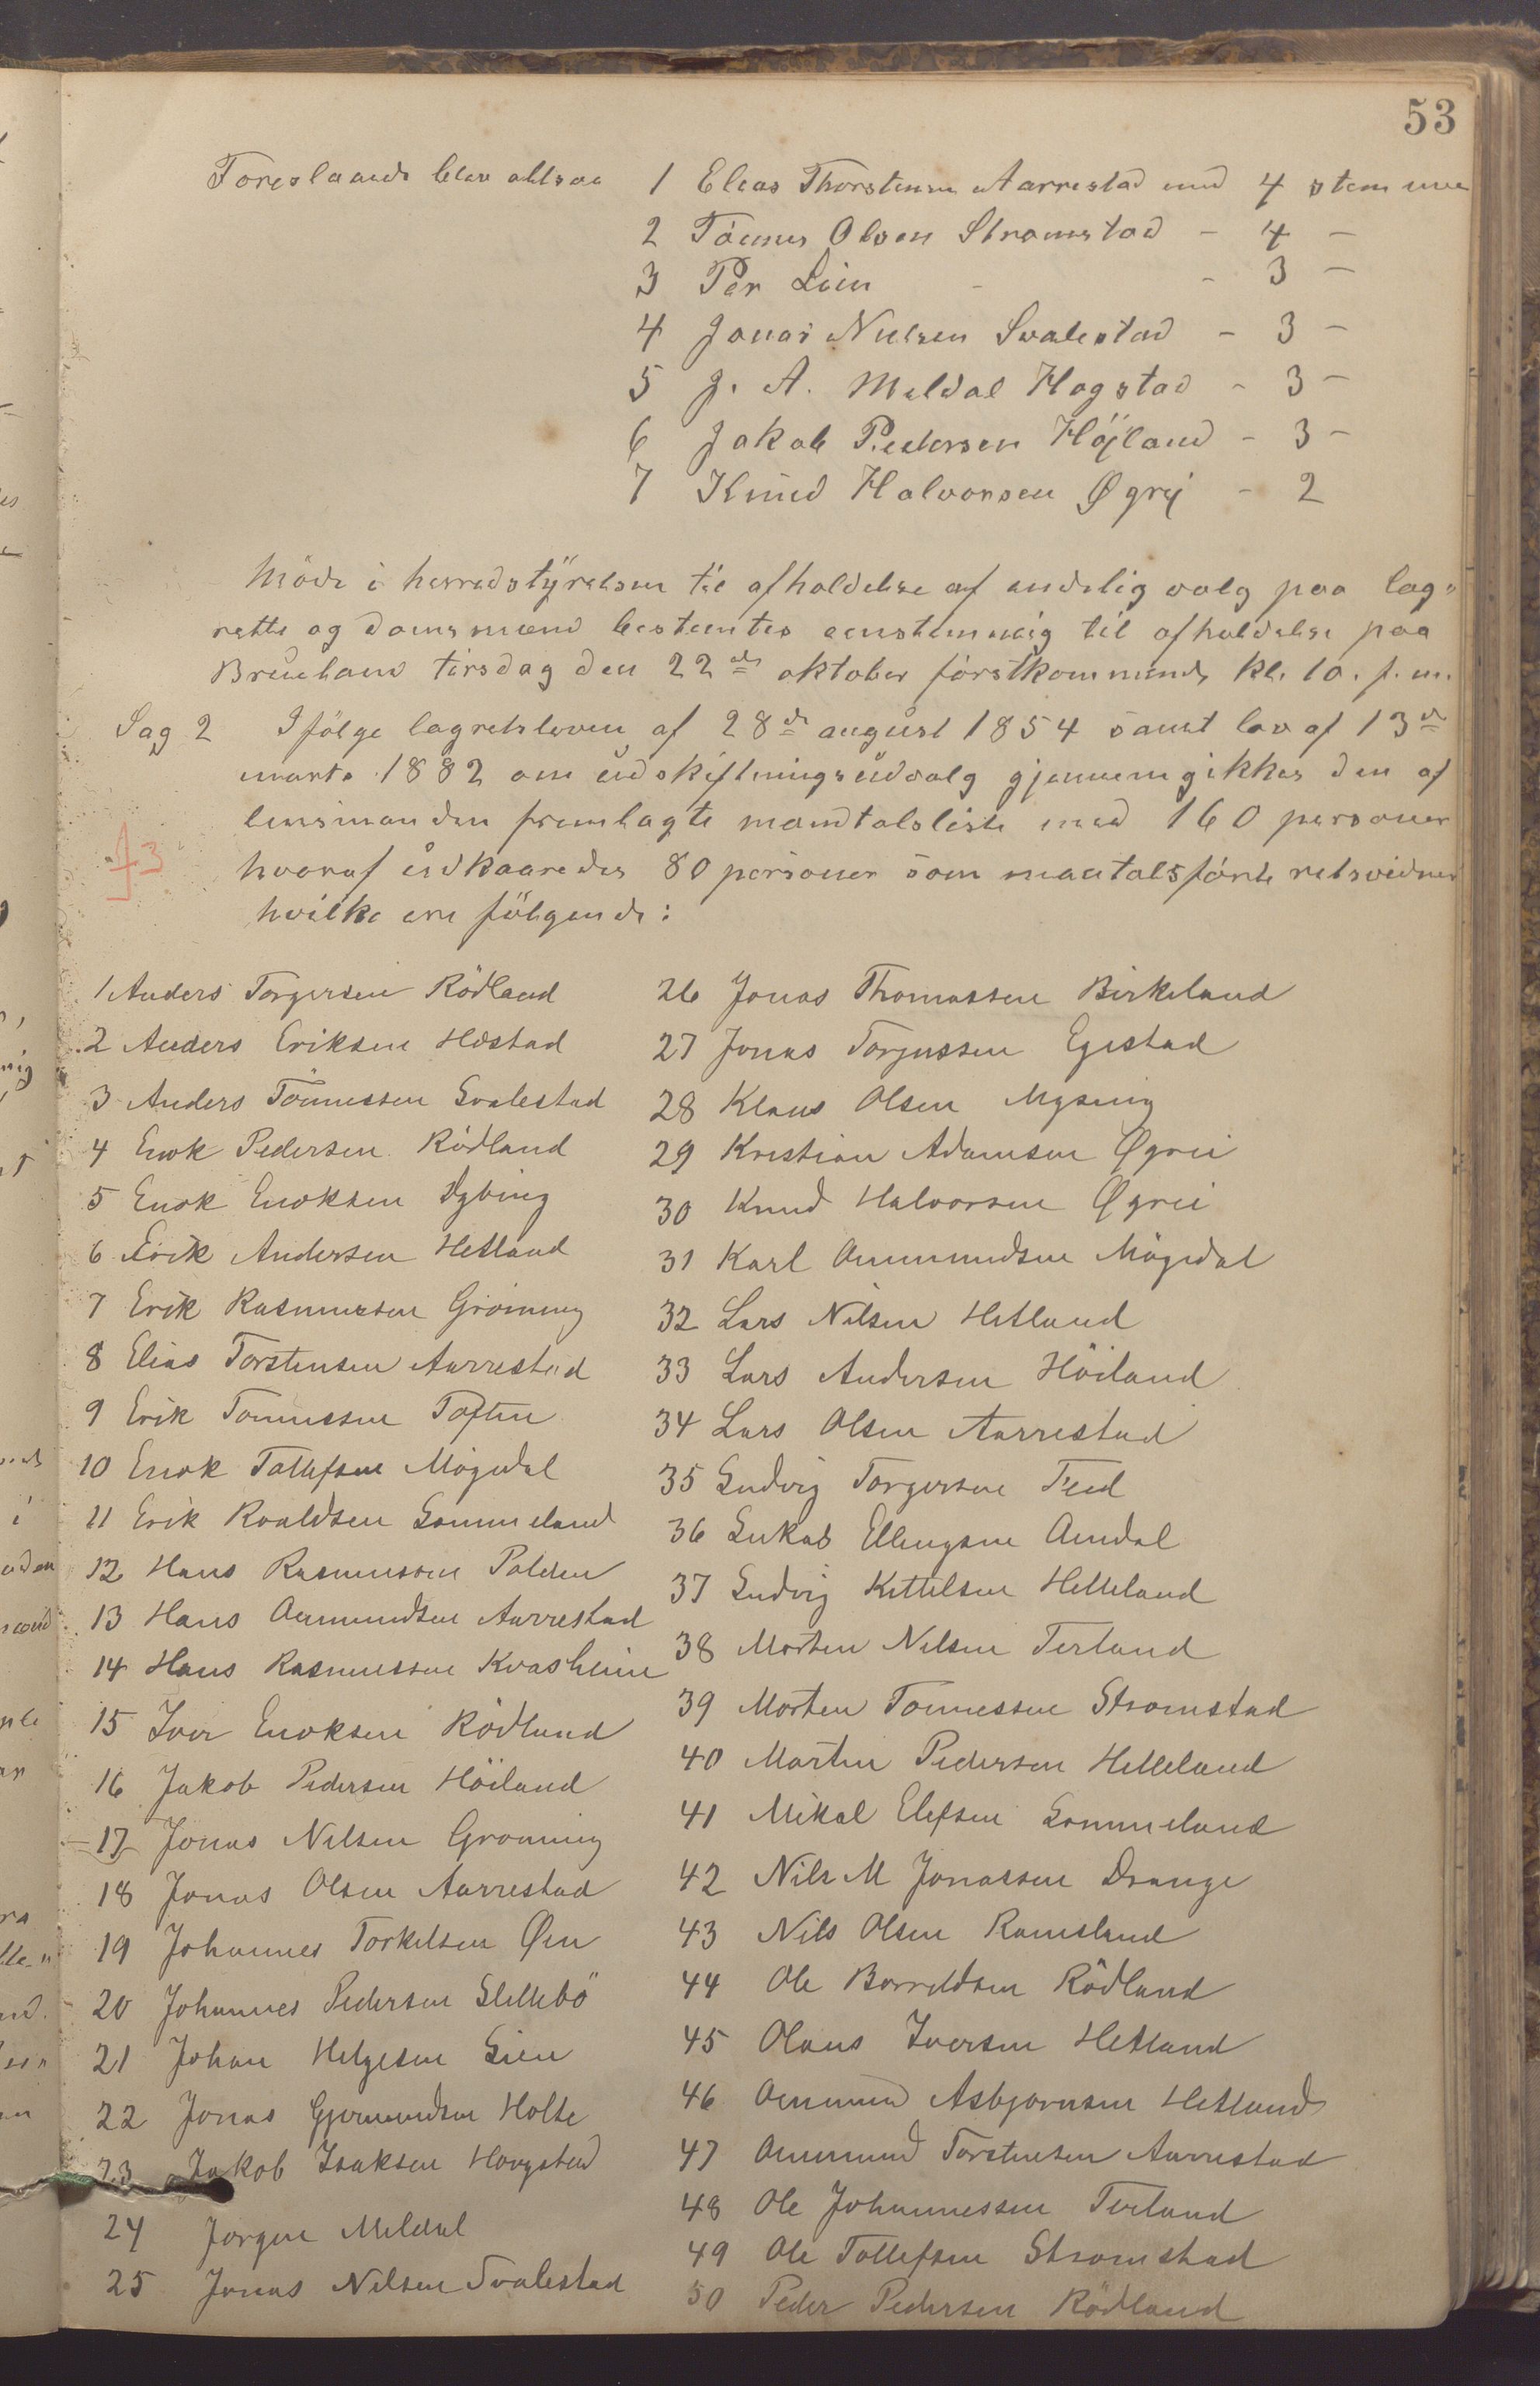 53
Foreslaaede blev altsaa 1 Elias Thorstensen Aarrestad med 4 stemmer
2 Tönnes Olsen Stromstad - 4 -
3 Per Lien - - 3 -
4 Jonas Nielsen Svalestad - 3 -
5 J. A. Meldal Hagstad - 3 -
6 Jakob Pedersen Höjland - 3 -
7 Knud Halvorsen Øgrej - 2
Möde i herredstyrelsen til afholdelse af endelig valg paa lag-
rette og domsmænd bestemtes enstemmig til afholdelse paa
Brueland tirsdag den 22de oktober förstkommende kl. 10. f. m.
Sag 2 Ifölge lagretsloven af 28de august 1854 samt lov af 13de
marts 1882 om udskiftningsudvalg gjennemgikkes den af
lensmanden fremlagte mandtalsliste med 160 personer
hvoraf udkaaredes 80 personer som maatalsförte retsvidner
hvilke ere fölgende:
J3
1 Anders Torgersen Rödland
2 Anders Eriksen Hæstad
3 Anders Tönnessen Svalestad
4 Enok Pedersen Rödland
5 Enok Enoksen Dybing
6 Erik Andersen Hetland
7 Erik Rasmussen Gröning
8 Elias Torstensen Aarrestad
9 Erik Tonnessen Toften
10 Enok Tollefsen Mögedal
11 Erik Roaldsen Sommeland
12 Hans Rasmussen Polden
13 Hans Aanmundsen Aarrestad
14 Hans Rasmussen Kvasheim
15 Iver Enoksen Rödland
16 Jakob Pedersen Höiland
17 Jonas Nilsen Groning
18 Jonas Olsen Aarrestad
19 Johannes Torkelsen Øen
20 Johannes Pedersen Slettebö
21 Johan Helgesen Lien
22 Jonas Gjermundsen Holte
23 Jakob Isaksen Hovgstad
24 Jorgen Meldal
25 Jonas Nilsen Svalestad
26 Jonas Thomassen Birkeland
27 Jonas Torjussen Egestad
28 Klaus Olsen Mysing
29 Kristian Adamsen Øgrei
30 Knud Halvorsen Øgrei
31 Karl Ommundsen Mögedal
32 Lars Nilsen Hetland
33 Lars Andersen Höiland
34 Lars Olsen Aarrestad
35 Ludvig Torgersen Feed
36 Lukas Ellingsen Amdal
37 Ludvig Kittelsen Helleland
38 Morten Nilsen Terland
39 Morten Tonnessen Stromstad
40 Martin Pedersen Helleland
41 Mikal Elefsen Sommeland
42 Nils M Jonassen Drange
43 Nils Olsen Ramsland
44 Ole Borrildsen Rödland
45 Olaus Iversen Hetland
46 Ommund Asbjornsen Hetland
47 Ommund Torstensen Aarrestad
48 Ole Johannessen Terland
49 Ole Tollefsen Stromstad
50 Peder Pedersen Rödland